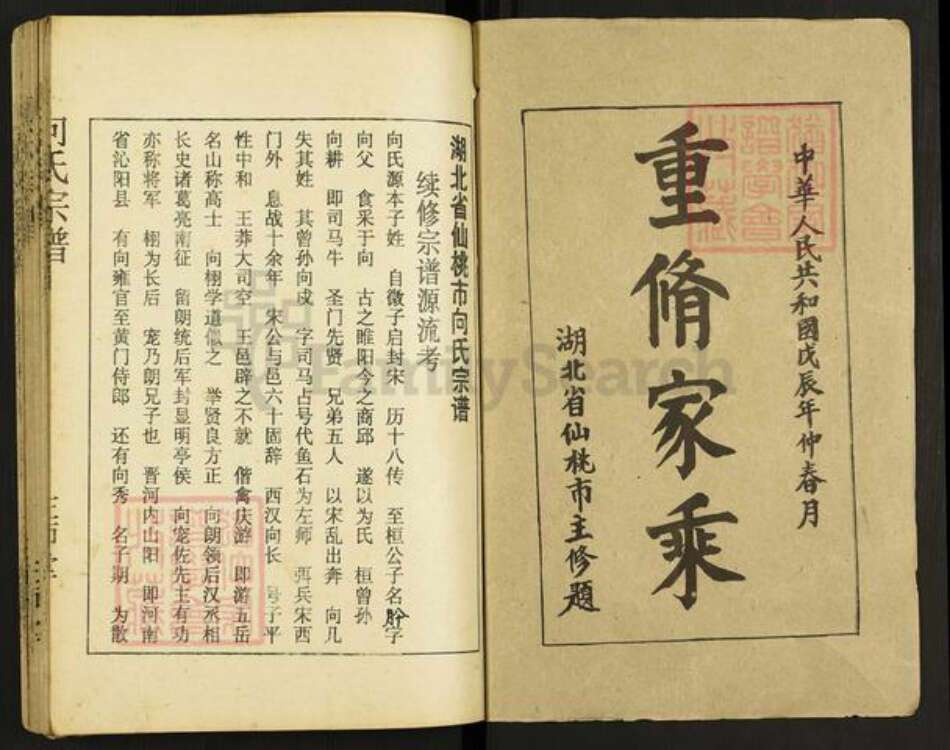 中華人民共和國戊辰年仲春月
重脩家乘
湖北省仙桃市主修題
湖北省仙桃市向氏宗谱
续修宗谱源流考
向氏源本子姓 自微子启封宋 历十八传 至桓公子名肸字
向父 食采于向 古之睢阳今之商邱 遂以为氏 桓曾孙
向耕 即司马牛 圣门先贤 兄弟五人 以宋乱出奔 向几
失其姓 其曾孙向戍 字司马占号代鱼石为左师 弭兵宋西
门外 息战十余年 宋公与邑六十固辞 西汉向长 号子平
性中和 王莽大司空 王邑辟之不就 偕禽庆游 即游五岳
名山称高士 向栩学道似之 举贤良方正 向朗领后汉丞相
长史诸葛亮南征 留朗统后军封显明亭侯 向宠佐先主有功
亦称将军 栩为长后 宠乃朗兄子也 晋河内山阳 即河南
省沁阳县 有向雍官至黄门侍郎 还有向秀 名子期 为散
向氏宗谱
FamilySearch